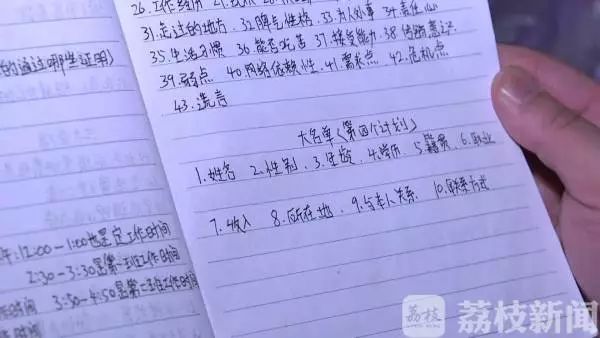 的通过哪些证明)
午:12:00-1:00也是定工作时间
2:30-3:30是第一班工作时间
作时间 3:30-4:50是第二班工作时间
作时间
26.工作经历
31.走过的地方 32.脾气性格 33.为人处事 34.责任心
35.生活习惯 36.能否吃苦 37.接受能力 38.传销意识
39.弱点 40.网络依赖性 41.需求点 42.危机点
43.谎言
大名单(第四个计划)
1.姓名 2.性别 3.年龄 4.学历 5.籍贯 6.职业
7.收入 8.所在地 9.与本人关系 10.联系方式
荔枝
荔枝新闻